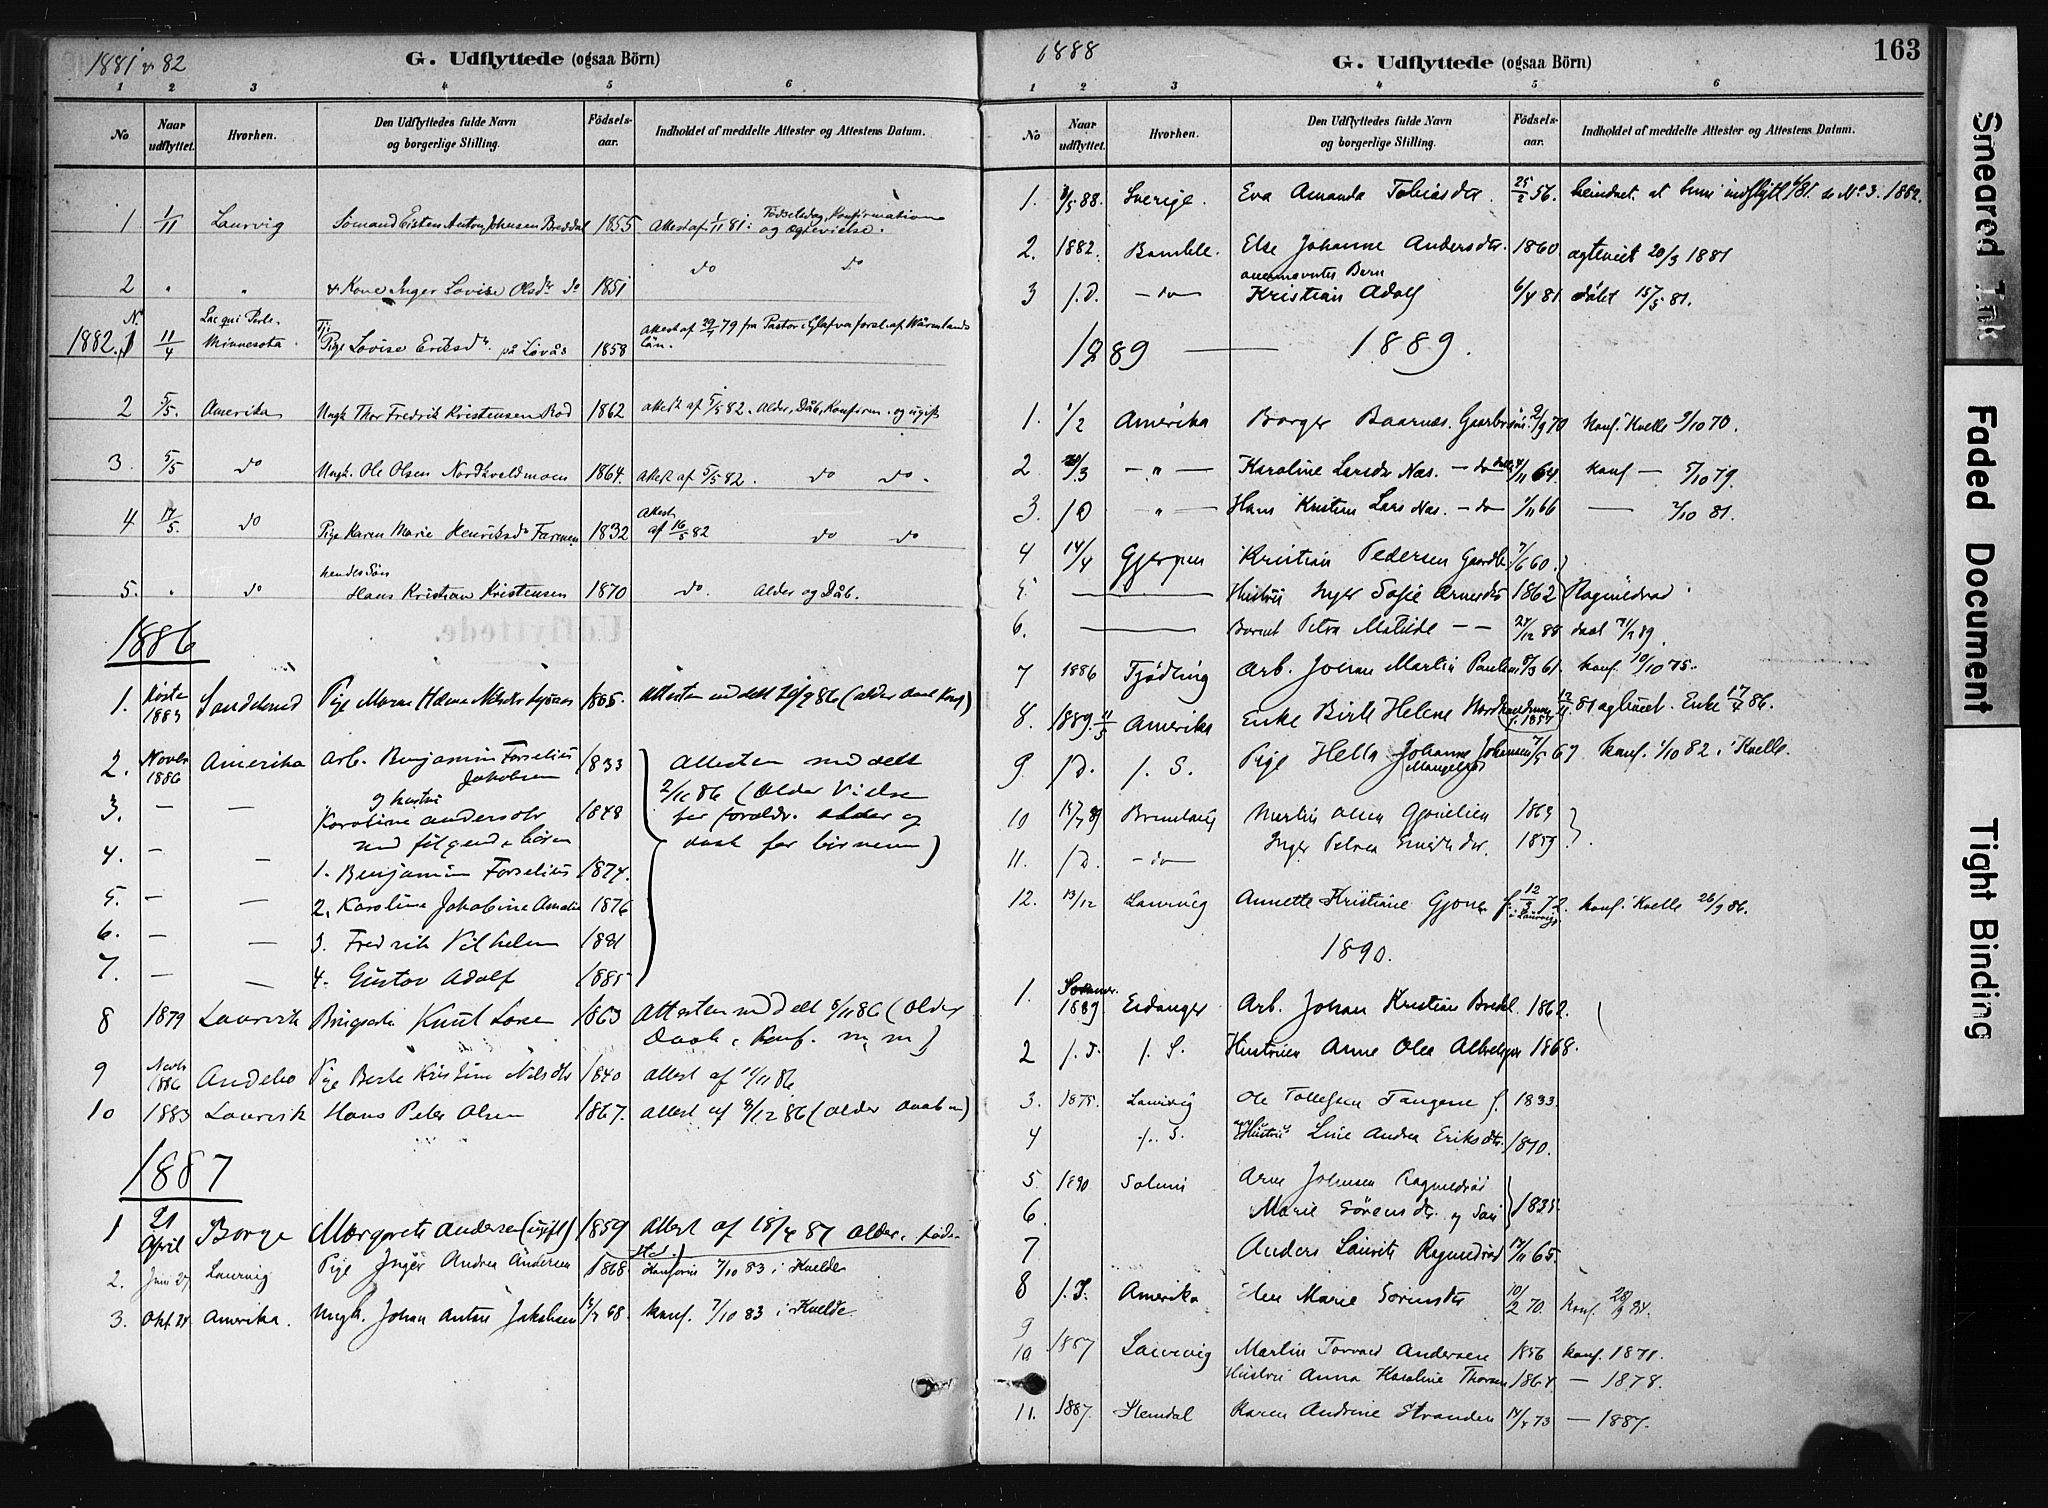 1881 & 82
G. Udflyttede (ogsaa Börn)
1 2 3 4 5 6
No Naar udflyttet. Hvorhen. Den Udflyttedes fulde Navn og borgerlige Stilling. Födsels-aar. Indholdet af meddelte Attester og Attestens Datum.
1 1/11 Laurvig Sömand Eisten Anton Johnsen Breddal 1855 Attest af 1/11 81: Födselsdag, Konfirmation og Ægtevielse.
2 " " & Kone Inger Lovise Olsdr do 1851 do do
1882. N. 1 11/4 Lac qui Parle- Minnesota Tj. Pige Lovise Eriksdr på Lövås 1858 Attest af 29/ 79 fra Pastor i Glafva forsl. af Wärmlands län.
2 5/5. Amerika Ungk. Thor Fredrik Kristensen Rød 1862 Attest af 5/5 82. Alder, Dåb, Konfirm. og ugift
3. 5/5 do Ungk. Ole Olsen Nordkveldmoen 1864. Attest af 5/5 82. do do.
4 17/5. do Pige Karen Marie Henriksdr Farmen 1832 Attest af 16/5 82 do do
5. " do hendes Søn Hans Kristian Kristensen 1870 do. Alder og Dåb.
1886
1. 1883 Sandeherred Pige Maren Helene 1865. Attesten meddelt 20/9 86 (alder daab Konf)
2. Novbr 1886 Amerika Arb. Benjamin Forselius Jakobsen 1833 Attesten meddelt
3. — — og hustru Karoline Andersdtr 1848 2/11 86 (Alder Vielse for foraldr. alder og
4. — — med følgende børn daab for börnene)
1. Benjamin Forselius 1874.
5. — — 2. Karoline Jakobine Amalie 1876
6. — — 3. Fredrik Vilhelm 1881
7. — — 4. Gustav Adolf 1885
8 1879 Laurvik Knut 1863 Attesten meddelt 8/11 86 (alder Daab, Konf. m, m)
9 Novbr 1886 Andebo Pige Berte Kristine Nilsdtr 1840 attest af 11/11 86
10 1883 Laurvik Hans Peter Olsen 1867. attest af 8/12 86 (alder daab m)
1887
1 21 April Borge Margrete Andersen (ugift) 1859 Attest af 18/4 87 alder, føde-
2. Juni 27 Laurvig Pige Inger Andrea Andersen 1868 sted.) Konfirm 7/10 83 i Kvelde
3. Okt. 24 Amerika. Ungk. Johan Anton Jakobsen 68 konf. 7/10 83 i Kvelde
1888
G. Udflyttede (ogsaa Börn)
163
1 2 3 4 5 6
No Naar udflyttet. Hvorhen. Den Udflyttedes fulde Navn og borgerlige Stilling. Födsels-aar. Indholdet af meddelte Attester og Attestens Datum.
1. /5 88. Sverige. Eva Amanda Tobiasdr. 25/2 56. at hun indflytt 81. se No 3. 1882.
2. 1882. Bamble. Else Johanne Andersdtr. 1860. ægteviet 20/3 1881
3 s. D. — do — Barn Kristian Adolf 6/4 81. døbt 15/5 81.
1889 — 1889.
1. 1/2 Amerika Borger Baarnæs. 70 konf. Kvelle /10 70.
2 20/3 — " — Karoline Larsdr Næs. — do 4/11 64. konf — 5/10 79.
3. s D — " — Hans Kristian Lars Næs. — do 1/11 66 — 2/10 81.
4 14/4 Gjerpen Kristian Pedersen 7/6 60.
5. — — Hustru Inger Sofie Arnesdtr 1862 Ragnildrød
6. — — Barnet Petra Matilde — — 28/12 88 daab 89.
7 1886 Tjødling Arb. Johan Martin Paulsen 8/3 61. konf. 10/10 75.
8. 1889. 11/5 Amerika Enke Birte Helene f. 1854 81 agtviet. Enke 17/4 86.
9. s D. s. S. Pige Hella Johanne Johansen Mangelrød 67 konf. 1/10 82 i Kvelle.
10 15/7 89 Brunlaug Martin Olsen 1869
11. s D. — do — Inger Petrea 1859
12. 13/12 Laurvig Annette Kristiane Gjone f. 12/3 72. i Laurvig konf. Kvelle 26/9 86.
1890.
1. Sommer. 1889 Eidanger Arb. Johan Kristian 1862.
2 s. D. s. S. Hustruen Anne Olea 1868.
3. 1875. Laurvig Ole Tollefsen Tangene f. 1833.
4 s. S. Hustru Line Andrea Eriksdtr. 1840.
5. 1890 Solum Arne Johnsen Ragnildrød
6. Marie Sörensdtr. og Søn 1835.
7 Anders Laurits Ragnildrød /11 65.
8 s. D. Amerika Elen Marie Sorensdtr 10/2 70. konf. 28/9 84.
9
10 1887 Laurvig Martin Torvald Andersen 1856 konf. 1871.
Hustru Anna Karoline Thorsen 1864. — 1878.
11. 1887. Slemdal Karen Andrine Stranden 73 — 1887.
Smeared Ink
Faded Document
Tight Binding